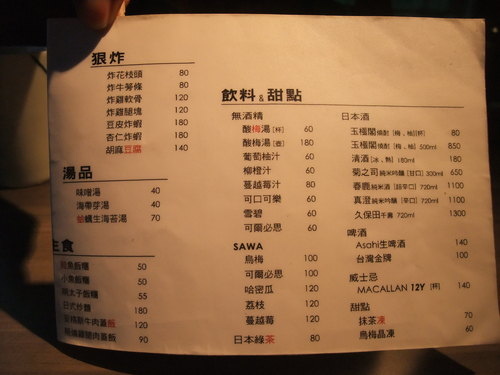 狠炸
炸花枝頭 80
炸牛蒡條 80
炸雞軟骨 120
炸雞腿塊 120
豆皮炸蝦 180
杏仁炸蝦 180
胡麻豆腐 140
湯品
味噌湯 40
海帶芽湯 40
蛤蠣生海苔湯 70
主食
鮭魚飯糰 50
小魚飯糰 50
明太子飯糰 55
日式炒麵 180
牛肉蓋飯 120
雞腿肉蓋飯 90
飲料&甜點
無酒精
酸梅湯 [杯] 60
酸梅湯 [壺] 180
葡萄柚汁 60
柳橙汁 60
蔓越莓汁 80
可口可樂 60
雪碧 60
可爾必思 60
SAWA
烏梅 100
可爾必思 100
哈密瓜 120
荔枝 120
蔓越莓 120
日本綠茶 80
日本酒
玉極閣燒酎 [梅、柚][杯] 80
玉極閣燒酎 [梅、柚] 500ml 850
清酒 [冰、熱] 180ml 180
菊之司 純米吟釀 [甘口] 330ml 650
春鹿 純米酒 [超辛口] 720ml 1100
真澄 純米吟釀 [辛口] 720ml 1100
久保田 千壽 720ml 1300
啤酒
Asahi生啤酒 140
台灣金牌 100
威士忌
MACALLAN 12Y [杯] 140
甜點
抹茶凍 70
烏梅晶凍 60